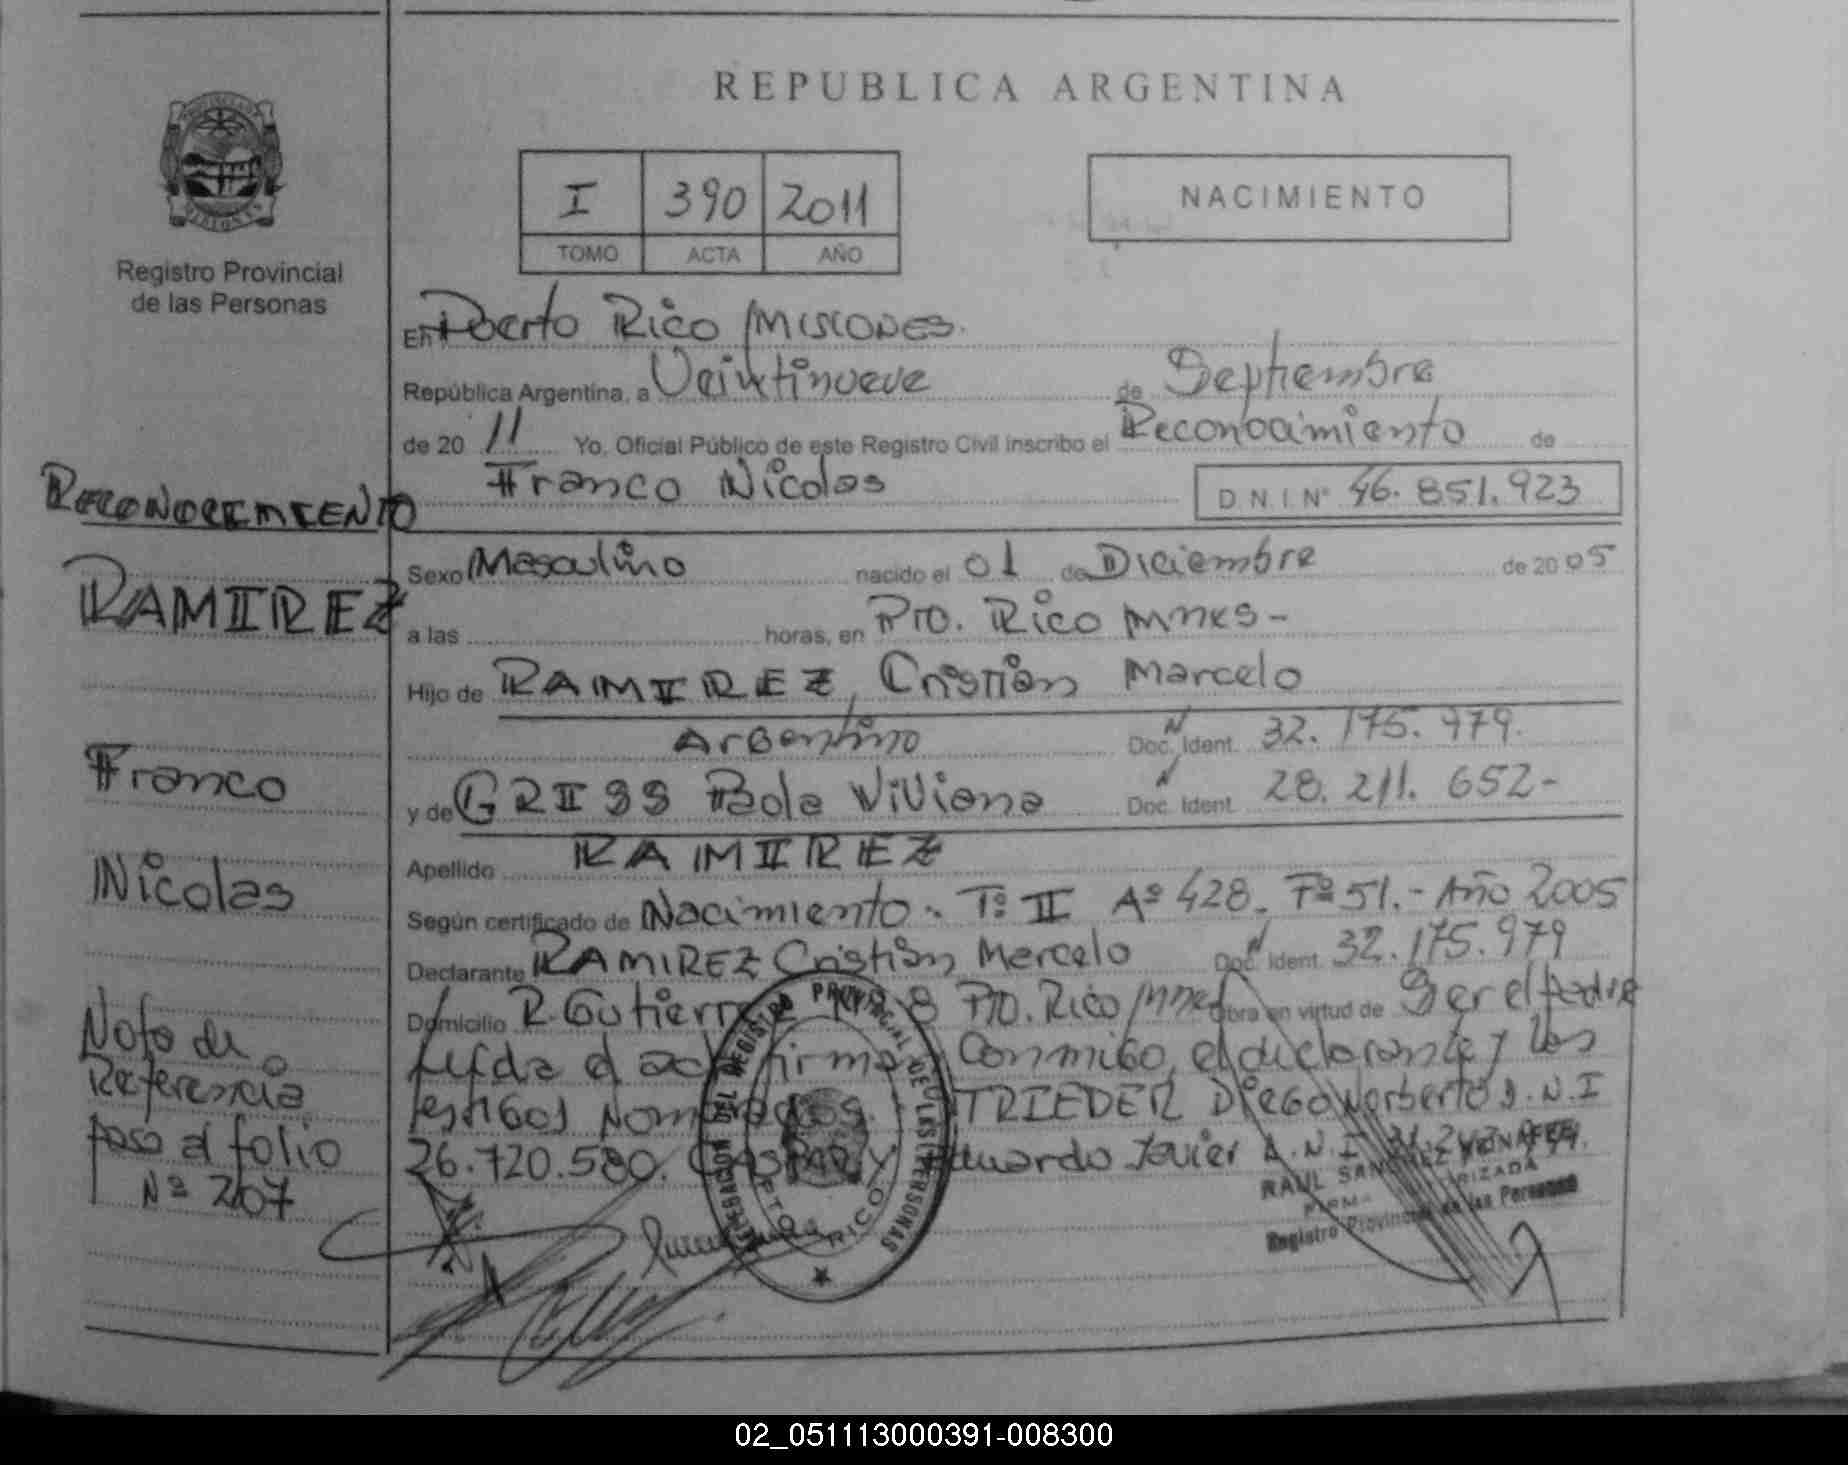 REPUBLICA ARGENTINA
I 390 2011
TOMO ACTA AÑO
NACIMIENTO
Registro Provincial
de las Personas
En Puerto Rico Misiones.
República Argentina, a Veintinueve de Septiembre
de 20 11 Yo, Oficial Público de este Registro Civil inscribo el Reconocimiento de
Franco Nicolas D.N.I.N° 46.851.923
RECONOCIMIENTO
RAMIREZ
Franco
Nicolas
Nota de
Referencia
paso al folio
Nº 207
Sexo Masculino nacido el 01 de Diciembre de 20 05
a las horas, en Pto. Rico Mnes-
Hijo de RAMIREZ, Cristián Marcelo
Argentino Doc. Ident. 32.175.979.
y de GRISS Paola Viviana Doc. Ident. 28.211.652-
Apellido RAMIREZ
Según certificado de Nacimiento.- Tº II Aº 428.- Fº 51.- Año 2005
Declarante RAMIREZ Cristián Marcelo Doc. Ident. 32.175.979
Domicilio R. Gutierrez Pto. Rico Mnes Obra en virtud de Ser el Padre
Leída el acta firma Conmigo, el declarante y los
testigos nombrados. TRIEDER Diego Norberto D.N.I
26.720.580. GASPARY Eduardo Javier D.N.I
RAUL SANCHEZ
FIRMA AUTORIZADA
Registro Provincial de las Personas
DELEGACION DEL REGISTRO PROVINCIAL DE LAS PERSONAS
PTO. RICO
02_051113000391-008300